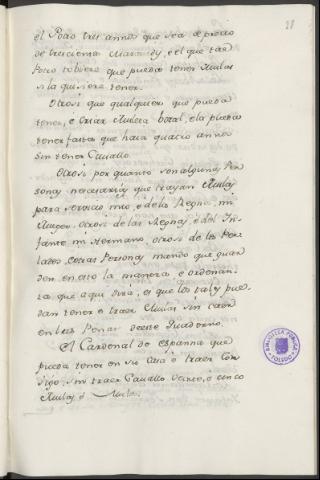 28
el Potro tres annos que sea de precio
de trescientos Maravedis, e el que tal
Potro tobiere que pueda tener Mula
si la quisiere tener.
Otrosi que qualquiera que pueda
tener, e criar Muleta bozal, e la pueda
tener fasta que haia quatro annos
sin tener Cavallo.
Otrosi por quanto son algunas Per
sonas necesarias que trayan Mulas
para servicio mio, e de la Regna, mi
Muger, otrosi de las Regnas, e del In
fante mi Hermano, otrosi de los Per
lados, e otras Personas mando que guar
den en esto la manera e ordenan
za que aqui dirá, e que los tales pue
dan tener e traer Mulas sin caer
en las Penas deste Quaderno.
El Cardenal de Espanna que
pueda tener en su Casa e traer con
sigo, sin traer Cavallo veinte, e cinco
Mulas e Mulos.
BIBLIOTECA PUBLICA
TOLEDO